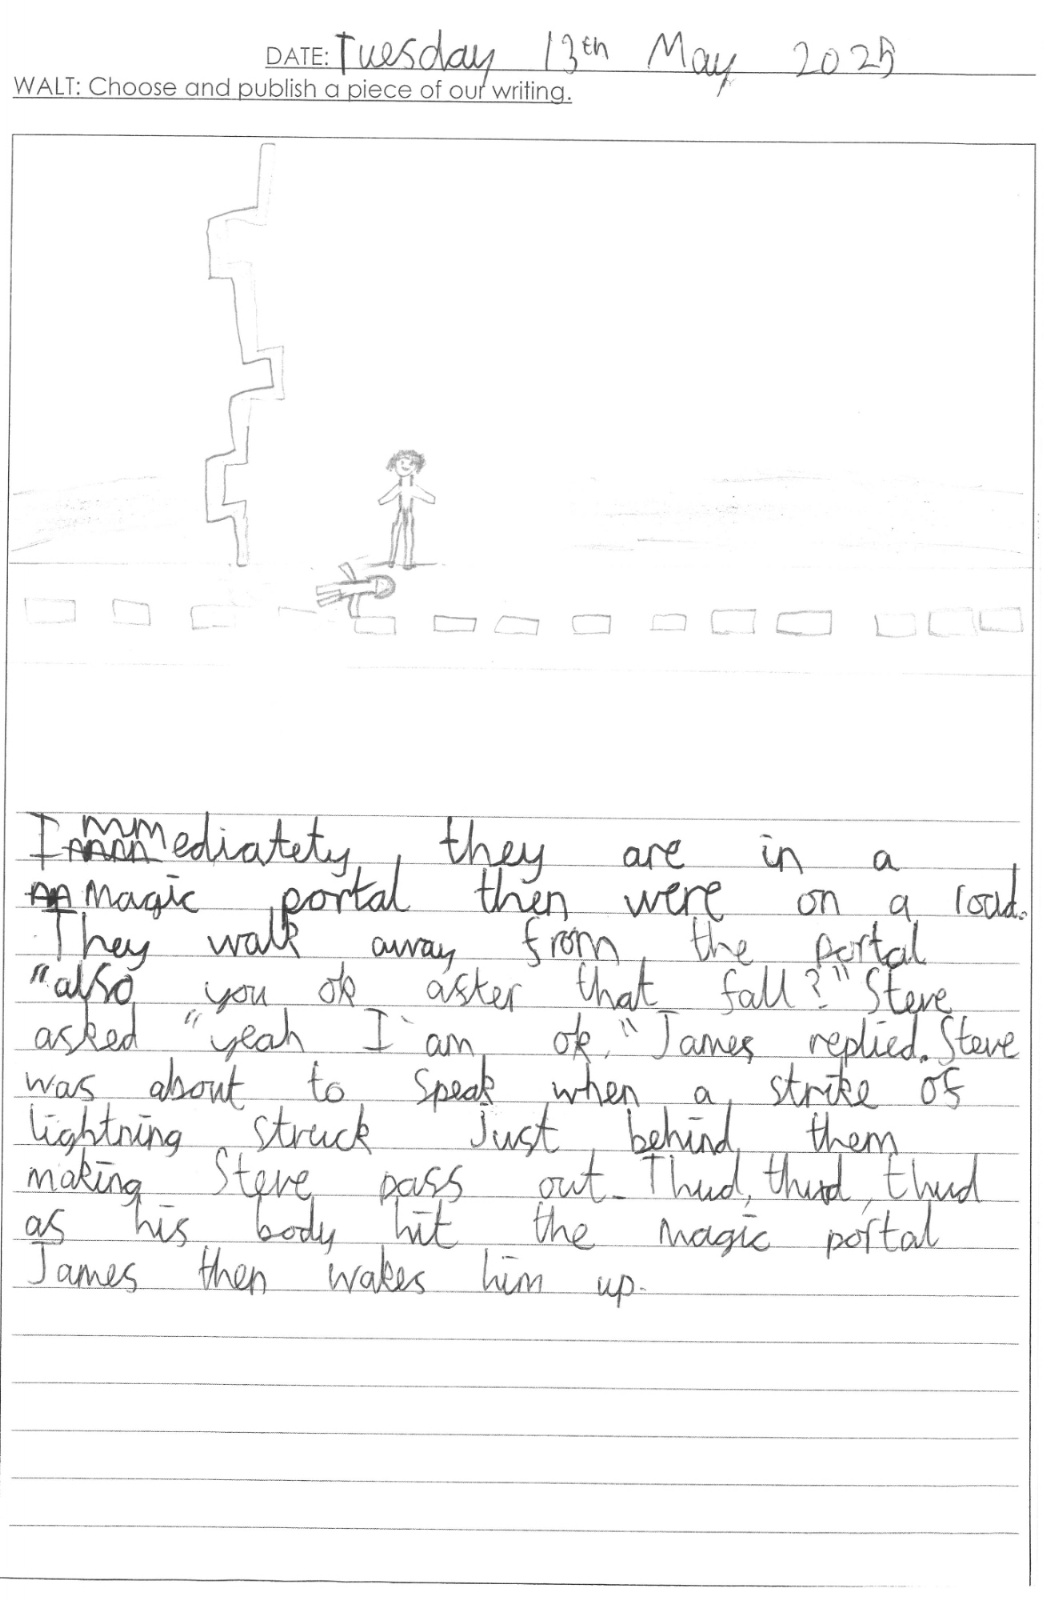 DATE: Tuesday 13th May 2025
WALT: Choose and publish a piece of our writing.
Immediatety, they are in a
Magic portal then were on a road.
They walk away from the portal
"also you ok aster that fall?" Steve
asked "yeah I'am ok." James replied. Steve
was about to speak when a strike of
lightning struck Just behind them
making Steve pass out. Thud, thud, thud
as his body hit the magic portal
James then wakes him up.